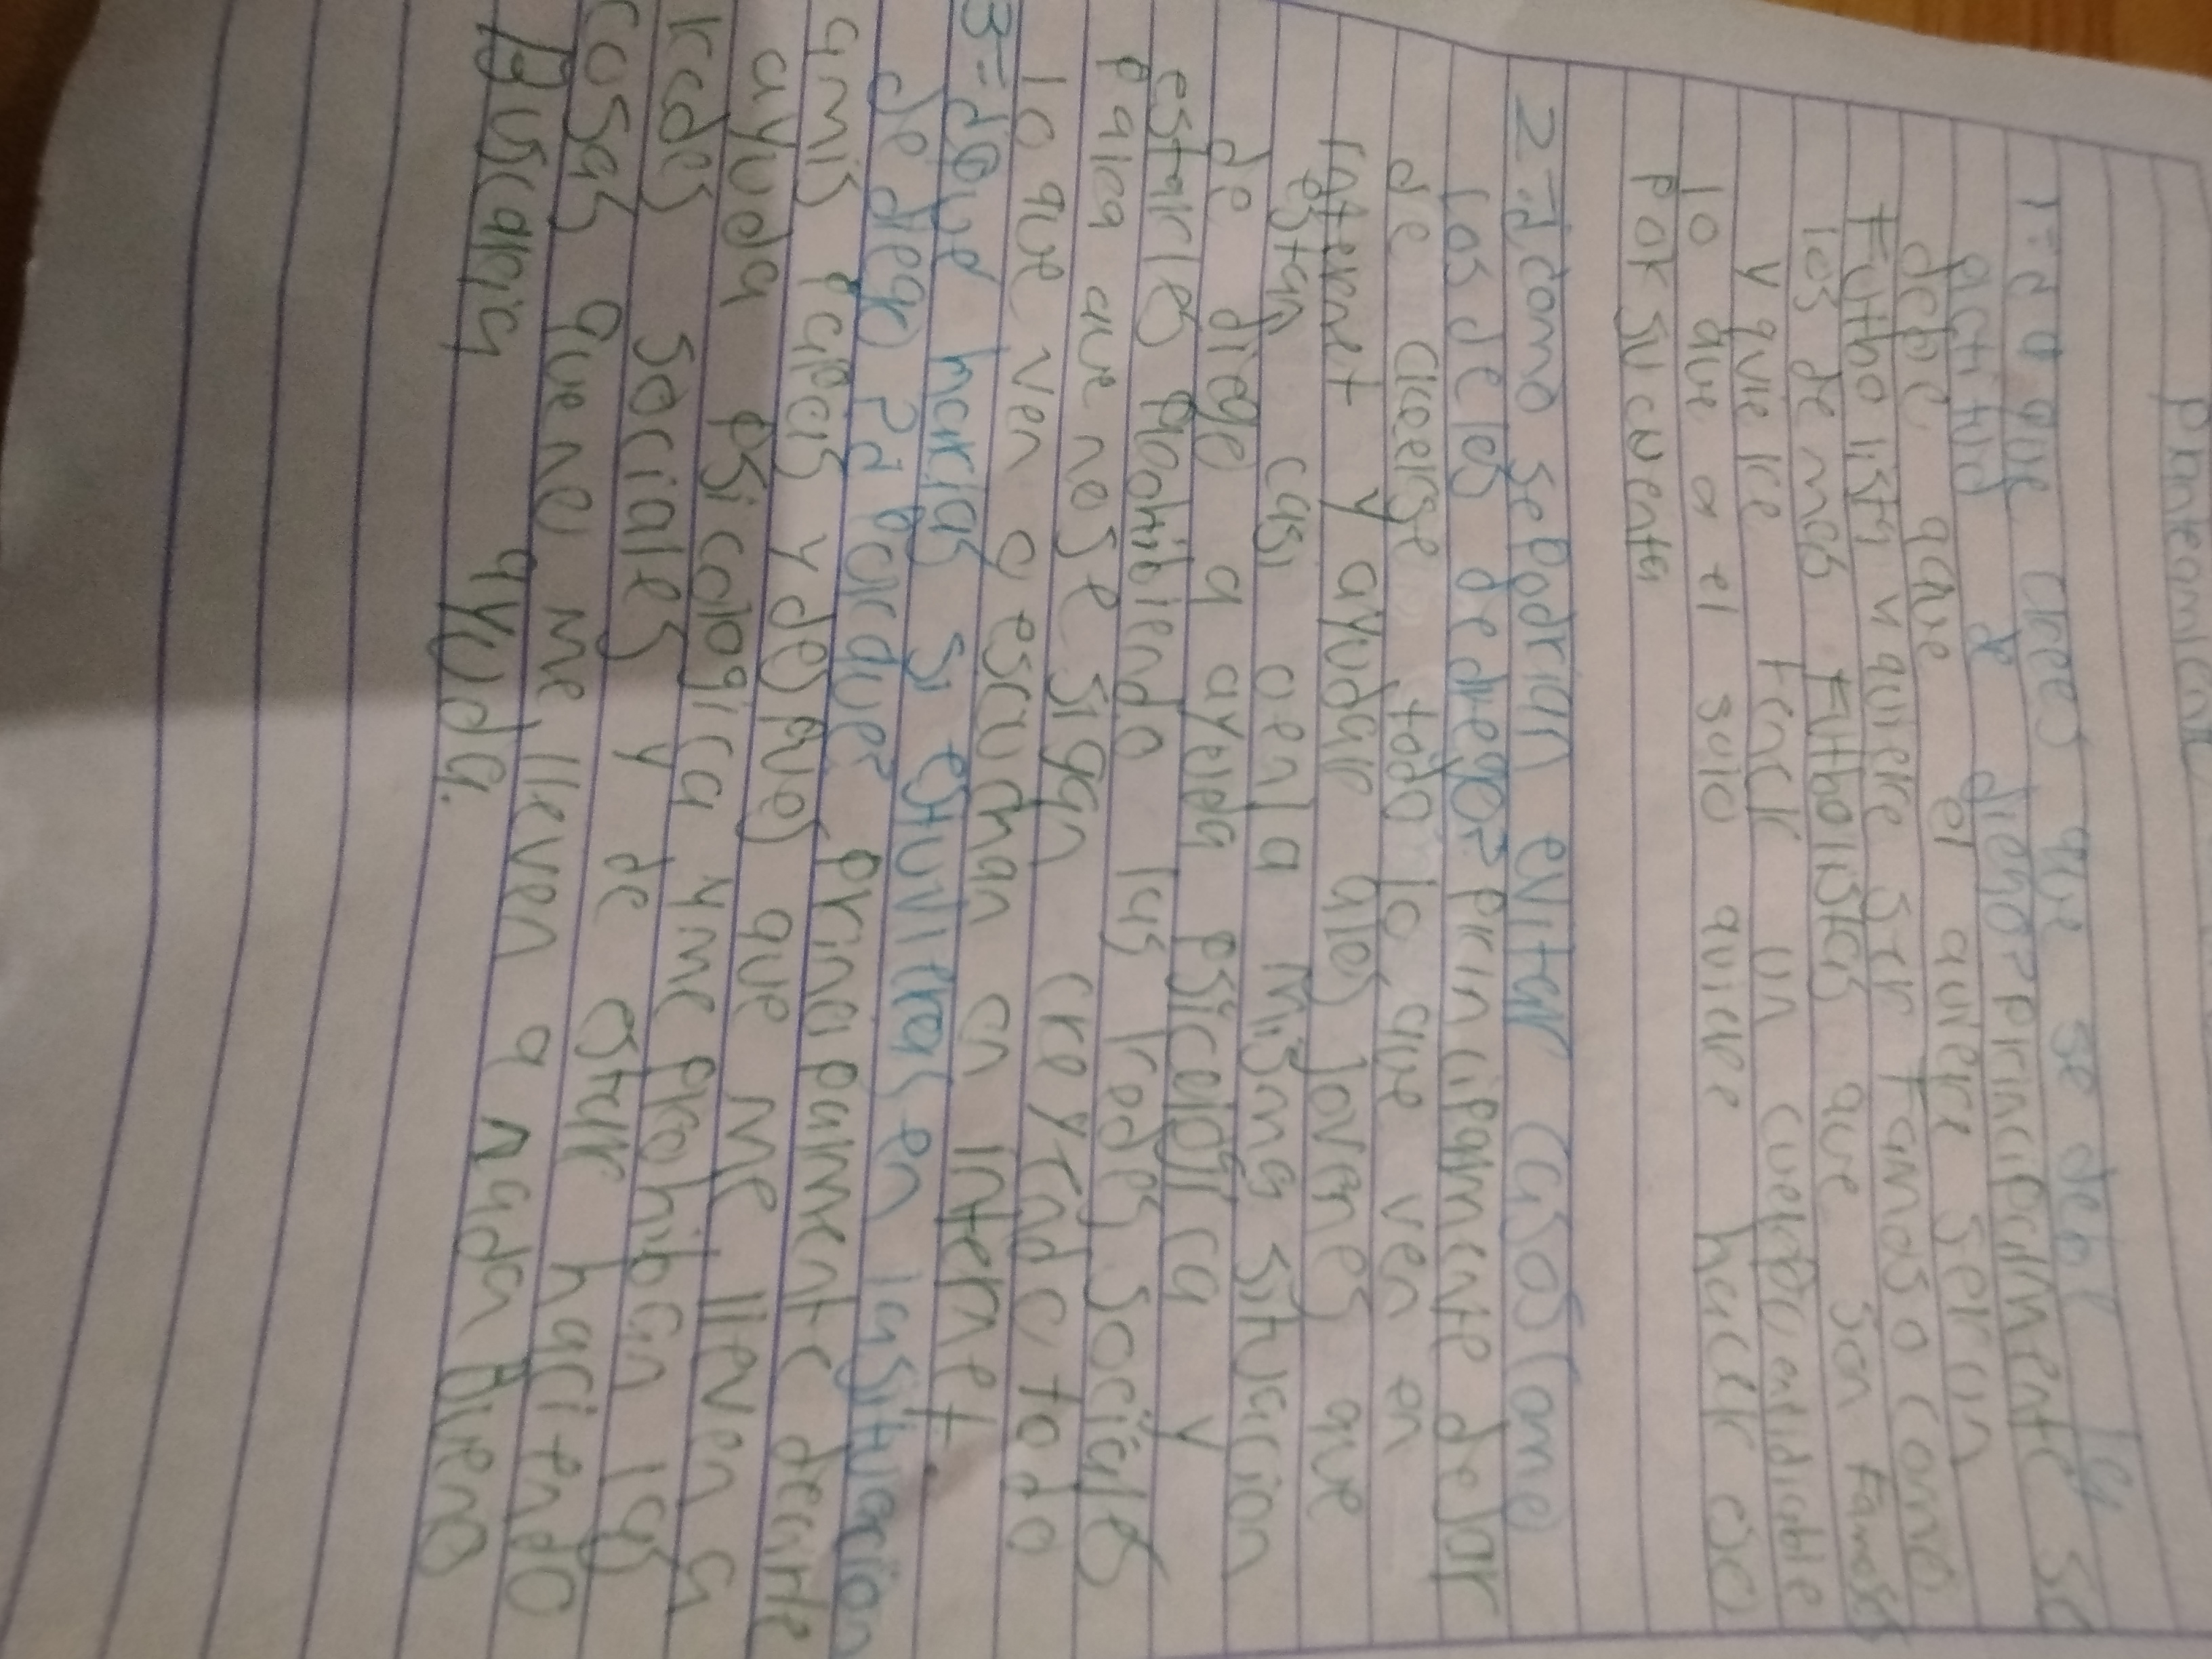 Planteamient
1= ¿ a que crees que se debe la
actitud de diego? principalmente se
debe que el quiere ser un
Futbolista y quiere ser famoso como
los demas Futbolistas que son famosos
y quiere tener un cuerpo
lo que a el solo quiere hacer eso
Por su cuenta
2=¿como se Podrian evitar casos como
los de les de diego? principalmente dejar
de creerse todo lo que ven en
internet y ayudar ales Jovenes que
estan casi oen la Misma situacion
de diego a ayuda psicologica y
estarles prohibiendo las redes sociales
para que nose sigan creyendo todo
lo que ven y escuchan en internet.
3=¿Que harias si estuvieras en la situacion
de diego ? Por que? principalmente decirle
amis papas y despues que me lleven a
ayuda psicologica y me prohiban las
redes sociales y de estar haciendo
cosas que ne me lleven a nada Bueno
Buscaria ayuda.